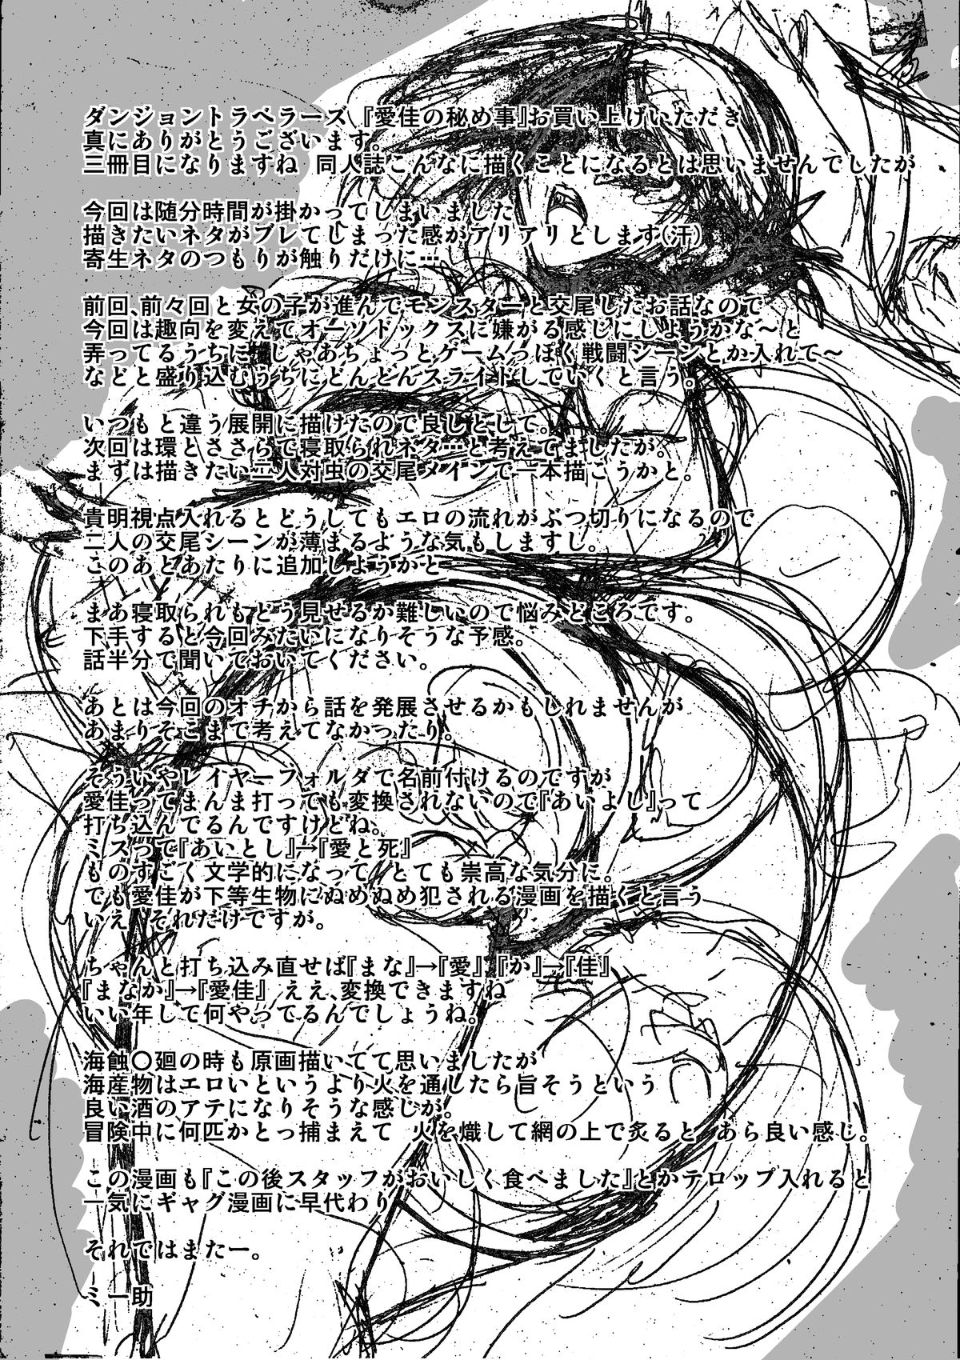 ダンジョントラベラーズ『愛佳の秘め事』お買い上げいただき
真にありがとうございます。
三冊目になりますね 同人誌こんなに描くことになるとは思いませんでしたが
今回は随分時間が掛かってしまいました
描きたいネタがブレてしまった感がアリアリとします(汗)
寄生ネタのつもりが触りだけに…
前回、前々回と女の子が進んでモンスターと交尾したお話なので
今回は趣向を変えてオーソドックスに嫌がる感じにしようかな～と
弄ってるうちに、じゃあちょっとゲームっぽく戦闘シーンとか入れて～
などと盛り込むうちにどんどんスライドしていくと言う。
いつもと違う展開に描けたので良しとして。
次回は環とささらで寝取られネタ…と考えてましたが。
まずは描きたい二人対虫の交尾メインで一本描こうかと。
貴明視点入れるとどうしてもエロの流れがぶつ切りになるので
二人の交尾シーンが薄まるような気もしますし。
このあとあたりに追加しようかと…
まあ寝取られもどう見せるか難しいので悩みどころです。
下手すると今回みたいになりそうな予感。
話半分で聞いておいてください。
あとは今回のオチから話を発展させるかもしれませんが
あまりそこまで考えてなかったり。
そういやレイヤーフォルダで名前付けるのですが
愛佳ってまんま打っても変換されないので『あいよし』って
打ち込んでるんですけどね。
ミスって『あいとし』→『愛と死』
ものすごく文学的になって とても崇高な気分に。
でも愛佳が下等生物にぬめぬめ犯される漫画を描くと言う
いえ それだけですが。
ちゃんと打ち込み直せば『まな』→『愛』『か』→『佳』
『まなか』→『愛佳』 ええ、変換できますね
いい年して何やってるんでしょうね。
海蝕〇廻の時も原画描いてて思いましたが
海産物はエロいというより火を通したら旨そうという
良い酒のアテになりそうな感じが。
冒険中に何匹かとっ捕まえて 火を熾して網の上で炙ると あら良い感じ。
この漫画も『この後スタッフがおいしく食べました』とかテロップ入れると
一気にギャグ漫画に早代わり
それではまたー。
ミー助